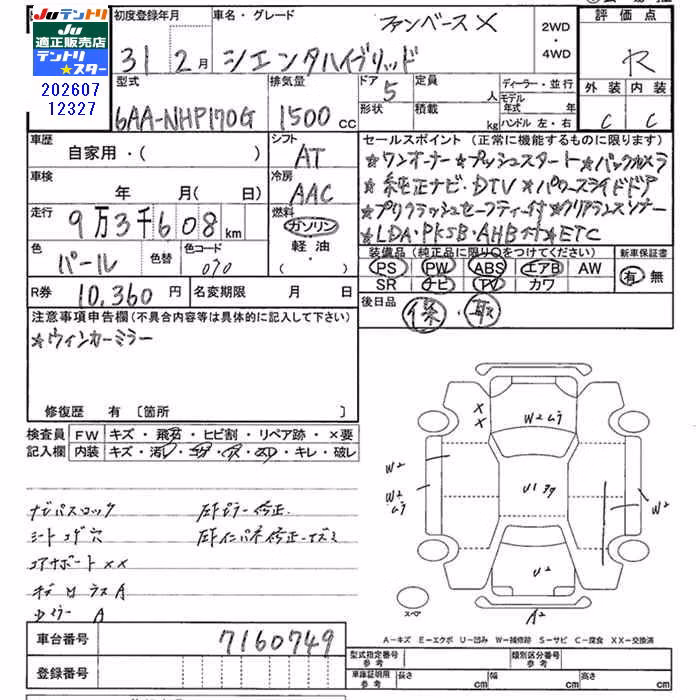 Juテントリ
Ju
適正販売店
テントリ
★スター
202607
12327
初度登録年月
31 2月
車名・グレード
ファンベースX
シエンタハイブリッド
2WD
・
4WD
評価点
R
外装 内装
C C
型式
6AA-NHP170G
排気量
1500 cc
ドア
5
定員
人
形状
積載
kg
ディーラー・並行
モデル
年式 年
ハンドル 左・右
車歴
自家用・( )
シフト
AT
車検
年 月( 日)
冷房
AAC
走行
9万3千608 km
燃料
ガソリン
軽油
( ・ )
色
パール
色替
色コード
070
R券 10,360円
名変期限 月 日
セールスポイント(正常に機能するものに限ります)
★ワンオーナー★プッシュスタート★バックカメラ
★純正ナビ・DTV★パワースライドドア
★プリクラッシュセーフティー付★クリアランスソナー
★LDA・PKSB・AHB付★ETC
装備品(純正品に限り○をつけてください)
新車保証書
PS PW ABS エアB AW
SR ナビ TV カワ
有 無
後日品
保・取
注意事項申告欄(不具合内容等は具体的に記入して下さい)
★ウィンカーミラー
修復歴 有 [箇所 ]
検査員
記入欄
FW キズ・飛石・ヒビ割・リペア跡・×要
内装 キズ・汚レ・コゲ・穴・スレ・キレ・破レ
ナビパスロック
シートコゲ穴
コアサポート××
左Fピラー修正
左Fインパネ修正
A
A
×
×
W2ムラ
W2
W2
ムラ
U1
W2
U2
A2
スペア
A-キズ E-エクボ U-凹み W-補修跡 S-サビ C-腐食 XX-交換済
車台番号
7160749
登録番号
型式指定番号
参考
類別区分番号
参考
車庫証明用
参考
長さ cm
幅 cm
高さ cm